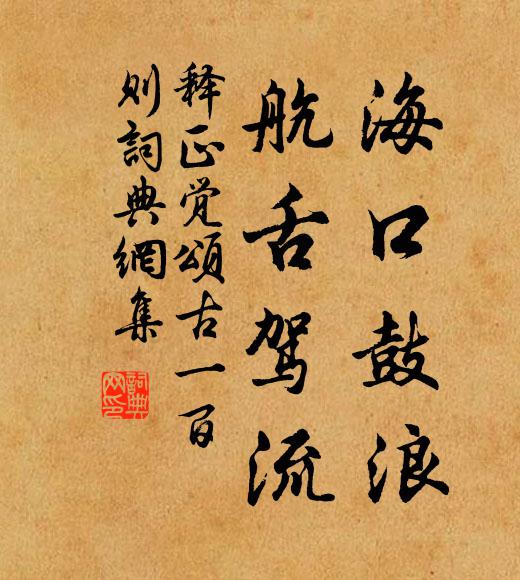 海口鼓浪
航舌驾流
释正觉颂古一百
则词典網集
詞典
网印